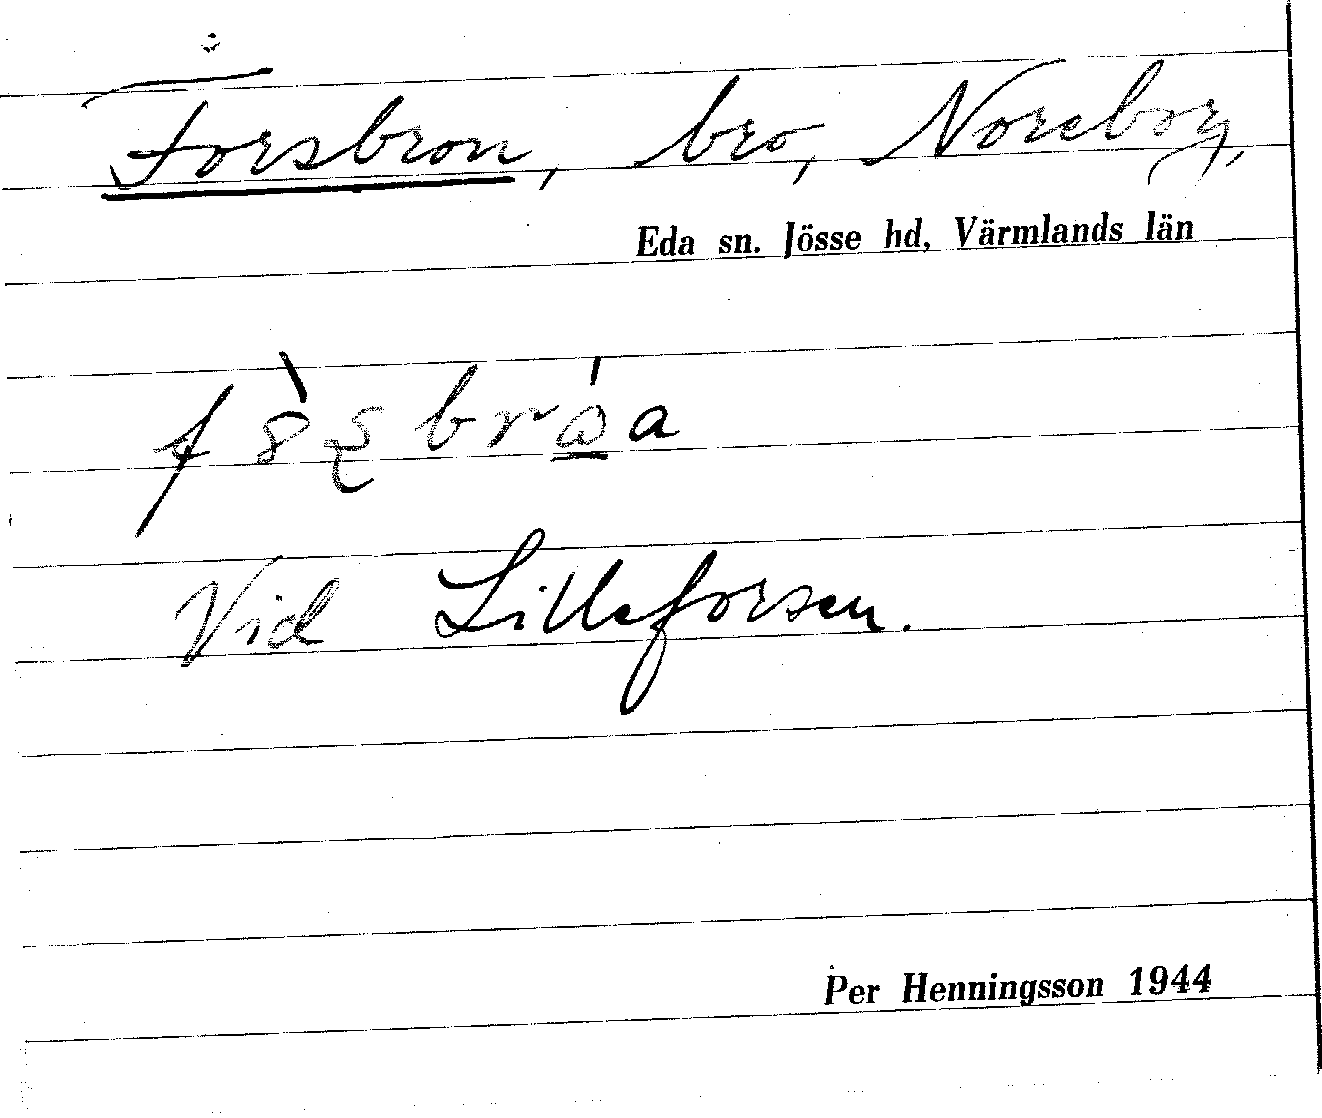 Forsbron, bro, Noreborg,
Eda sn. Jösse hd, Värmlands län
Vid Lilleforsen.
Per Henningsson 1944